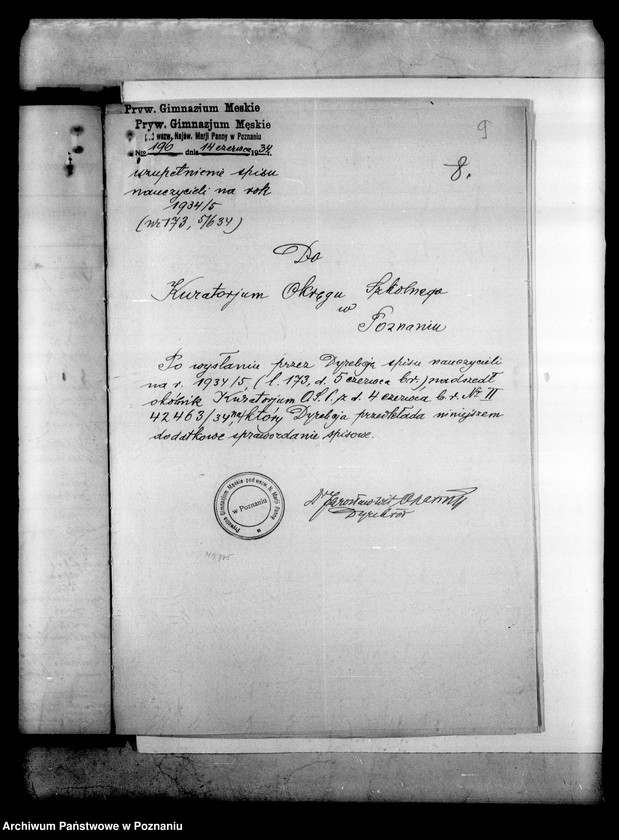 Pryw. Gimnazjum Męskie
Pryw. Gimnazjum Męskie
pod wezw. Najśw. Marji Panny w Poznaniu
Nr. 196 dnia 14 czerwca 1934 r.
9
8.
uzupełnienie spisu
nauczycieli na rok
1934/5
(nr 173, 5/6 34)
Do
Kuratorjum Okręgu Szkolnego
w
Poznaniu
Po wysłaniu przez Dyrekcję spisu nauczycieli
na r. 1934/5, (l. 173, d. 5 czerwca b.r.) nadszedł
okólnik Kuratorjum O.S.P. z d. 4 czerwca b.r. № II
42463/34, na który Dyrekcja przedkłada niniejszem
dodatkowe sprawozdanie spisowe.
Prywatne Gimnazjum Męskie pod wezw. N. Marji Panny
w Poznaniu
Dr Jarosław Wit Opatrny
Dyrektor
Archiwum Państwowe w Poznaniu